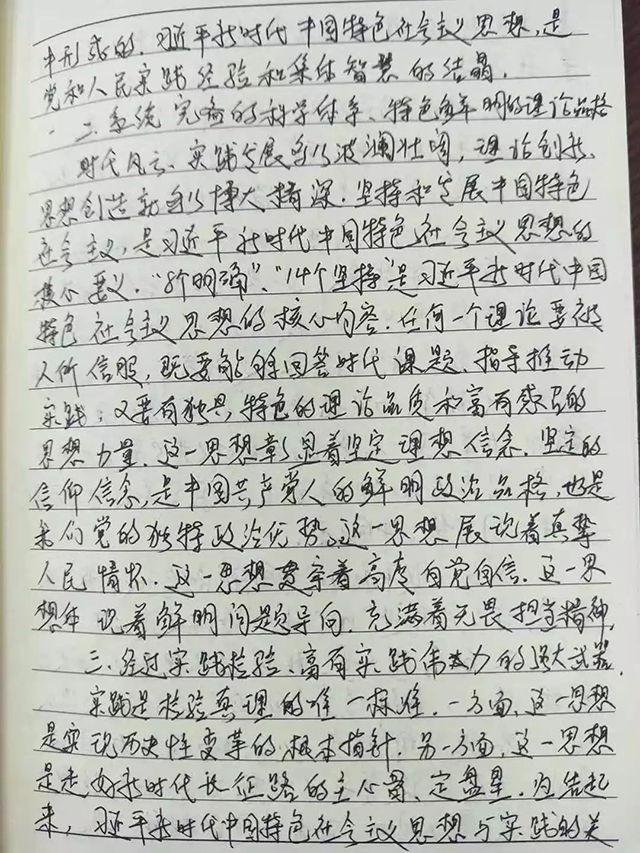 中形成的.习近平新时代中国特色社会主义思想,是
党和人民实践经验和集体智慧的结晶.
二.系统完备的科学体系、特色鲜明的理论品格
时代风云、实践发展越波澜壮阔,理论创新、
思想创造就越博大精深.坚持和发展中国特色
社会主义,是习近平新时代中国特色社会主义思想的
核心要义."8个明确"、"14个坚持"是习近平新时代中国
特色社会主义思想的核心内容.任何一个理论要被
人所信服,既要能够回答时代课题、指导推动
实践;又要有独具特色的理论品质和富有感召的
思想力量.这一思想彰显着坚定理想信念.坚定的
信仰信念,是中国共产党人的鲜明政治品格,也是
我们党的独特政治优势.这一思想展现着真挚
人民情怀.这一思想贯穿着高度自觉自信.这一思
想体现着鲜明问题导向.充满着无畏担当精神.
三.经过实践检验、富有实践伟力的强大武器.
实践是检验真理的唯一标准.一方面,这一思想
是实现历史性变革的根本指针.另一方面,这一思想
是走好新时代长征路的主心骨、定盘星.归结起
来,习近平新时代中国特色社会主义思想与实践的关